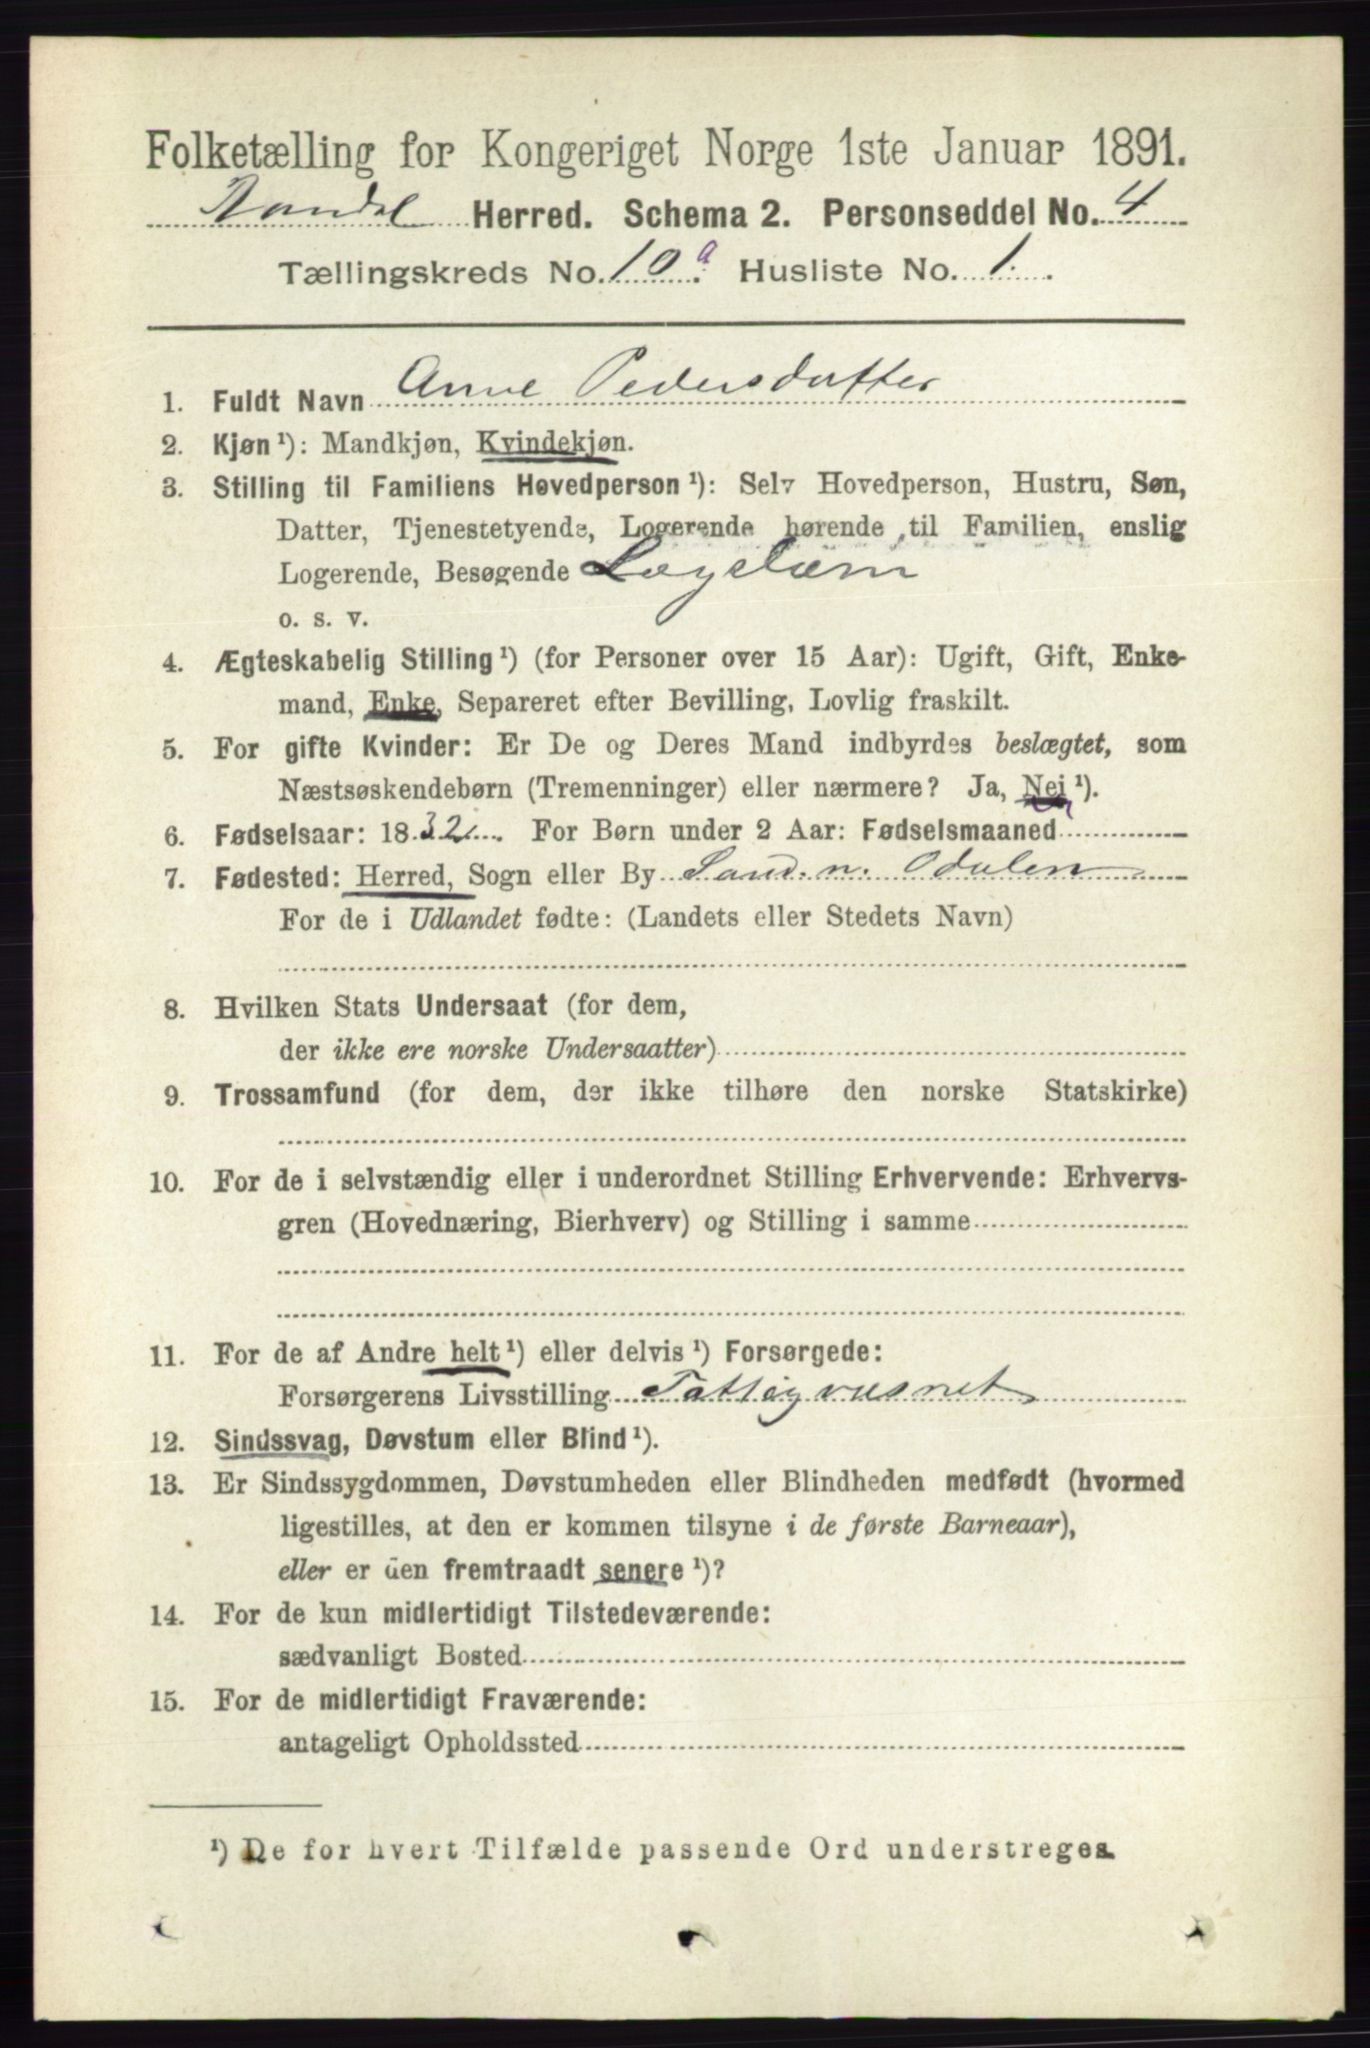 Folketælling for Kongeriget Norge 1ste Januar 1891.
Herred. Schema 2. Personseddel No. 4
Tællingskreds No. 10 a. Husliste No. 1.
1. Fuldt Navn Anne Pedersdatter
2. Kjøn ¹): Mandkjøn, Kvindekjøn.
3. Stilling til Familiens Hovedperson ¹): Selv Hovedperson, Hustru, Søn,
Datter, Tjenestetyende, Logerende hørende til Familien, enslig
Logerende, Besøgende Lægdlem
o. s. v.
4. Ægteskabelig Stilling ¹) (for Personer over 15 Aar): Ugift, Gift, Enke-
mand, Enke, Separeret efter Bevilling, Lovlig fraskilt.
5. For gifte Kvinder: Er De og Deres Mand indbyrdes beslægtet, som
Næstsøskendebørn (Tremenninger) eller nærmere? Ja, Nei ¹).
6. Fødselsaar: 1832. For Børn under 2 Aar: Fødselsmaaned
7. Fødested: Herred, Sogn eller By Sand. n. Odalen
For de i Udlandet fødte: (Landets eller Stedets Navn)
8. Hvilken Stats Undersaat (for dem,
der ikke ere norske Undersaatter)
9. Trossamfund (for dem, der ikke tilhøre den norske Statskirke)
10. For de i selvstændig eller i underordnet Stilling Erhvervende: Erhvervs-
gren (Hovednæring, Bierhverv) og Stilling i samme
11. For de af Andre helt ¹) eller delvis ¹) Forsørgede:
Forsørgerens Livsstilling Fattigvæsnet
12. Sindssvag, Døvstum eller Blind ¹).
13. Er Sindssygdommen, Døvstumheden eller Blindheden medfødt (hvormed
ligestilles, at den er kommen tilsyne i de første Barneaar),
eller er den fremtraadt senere ¹)?
14. For de kun midlertidigt Tilstedeværende:
sædvanligt Bosted
15. For de midlertidigt Fraværende:
antageligt Opholdssted
¹) De for hvert Tilfælde passende Ord understreges.